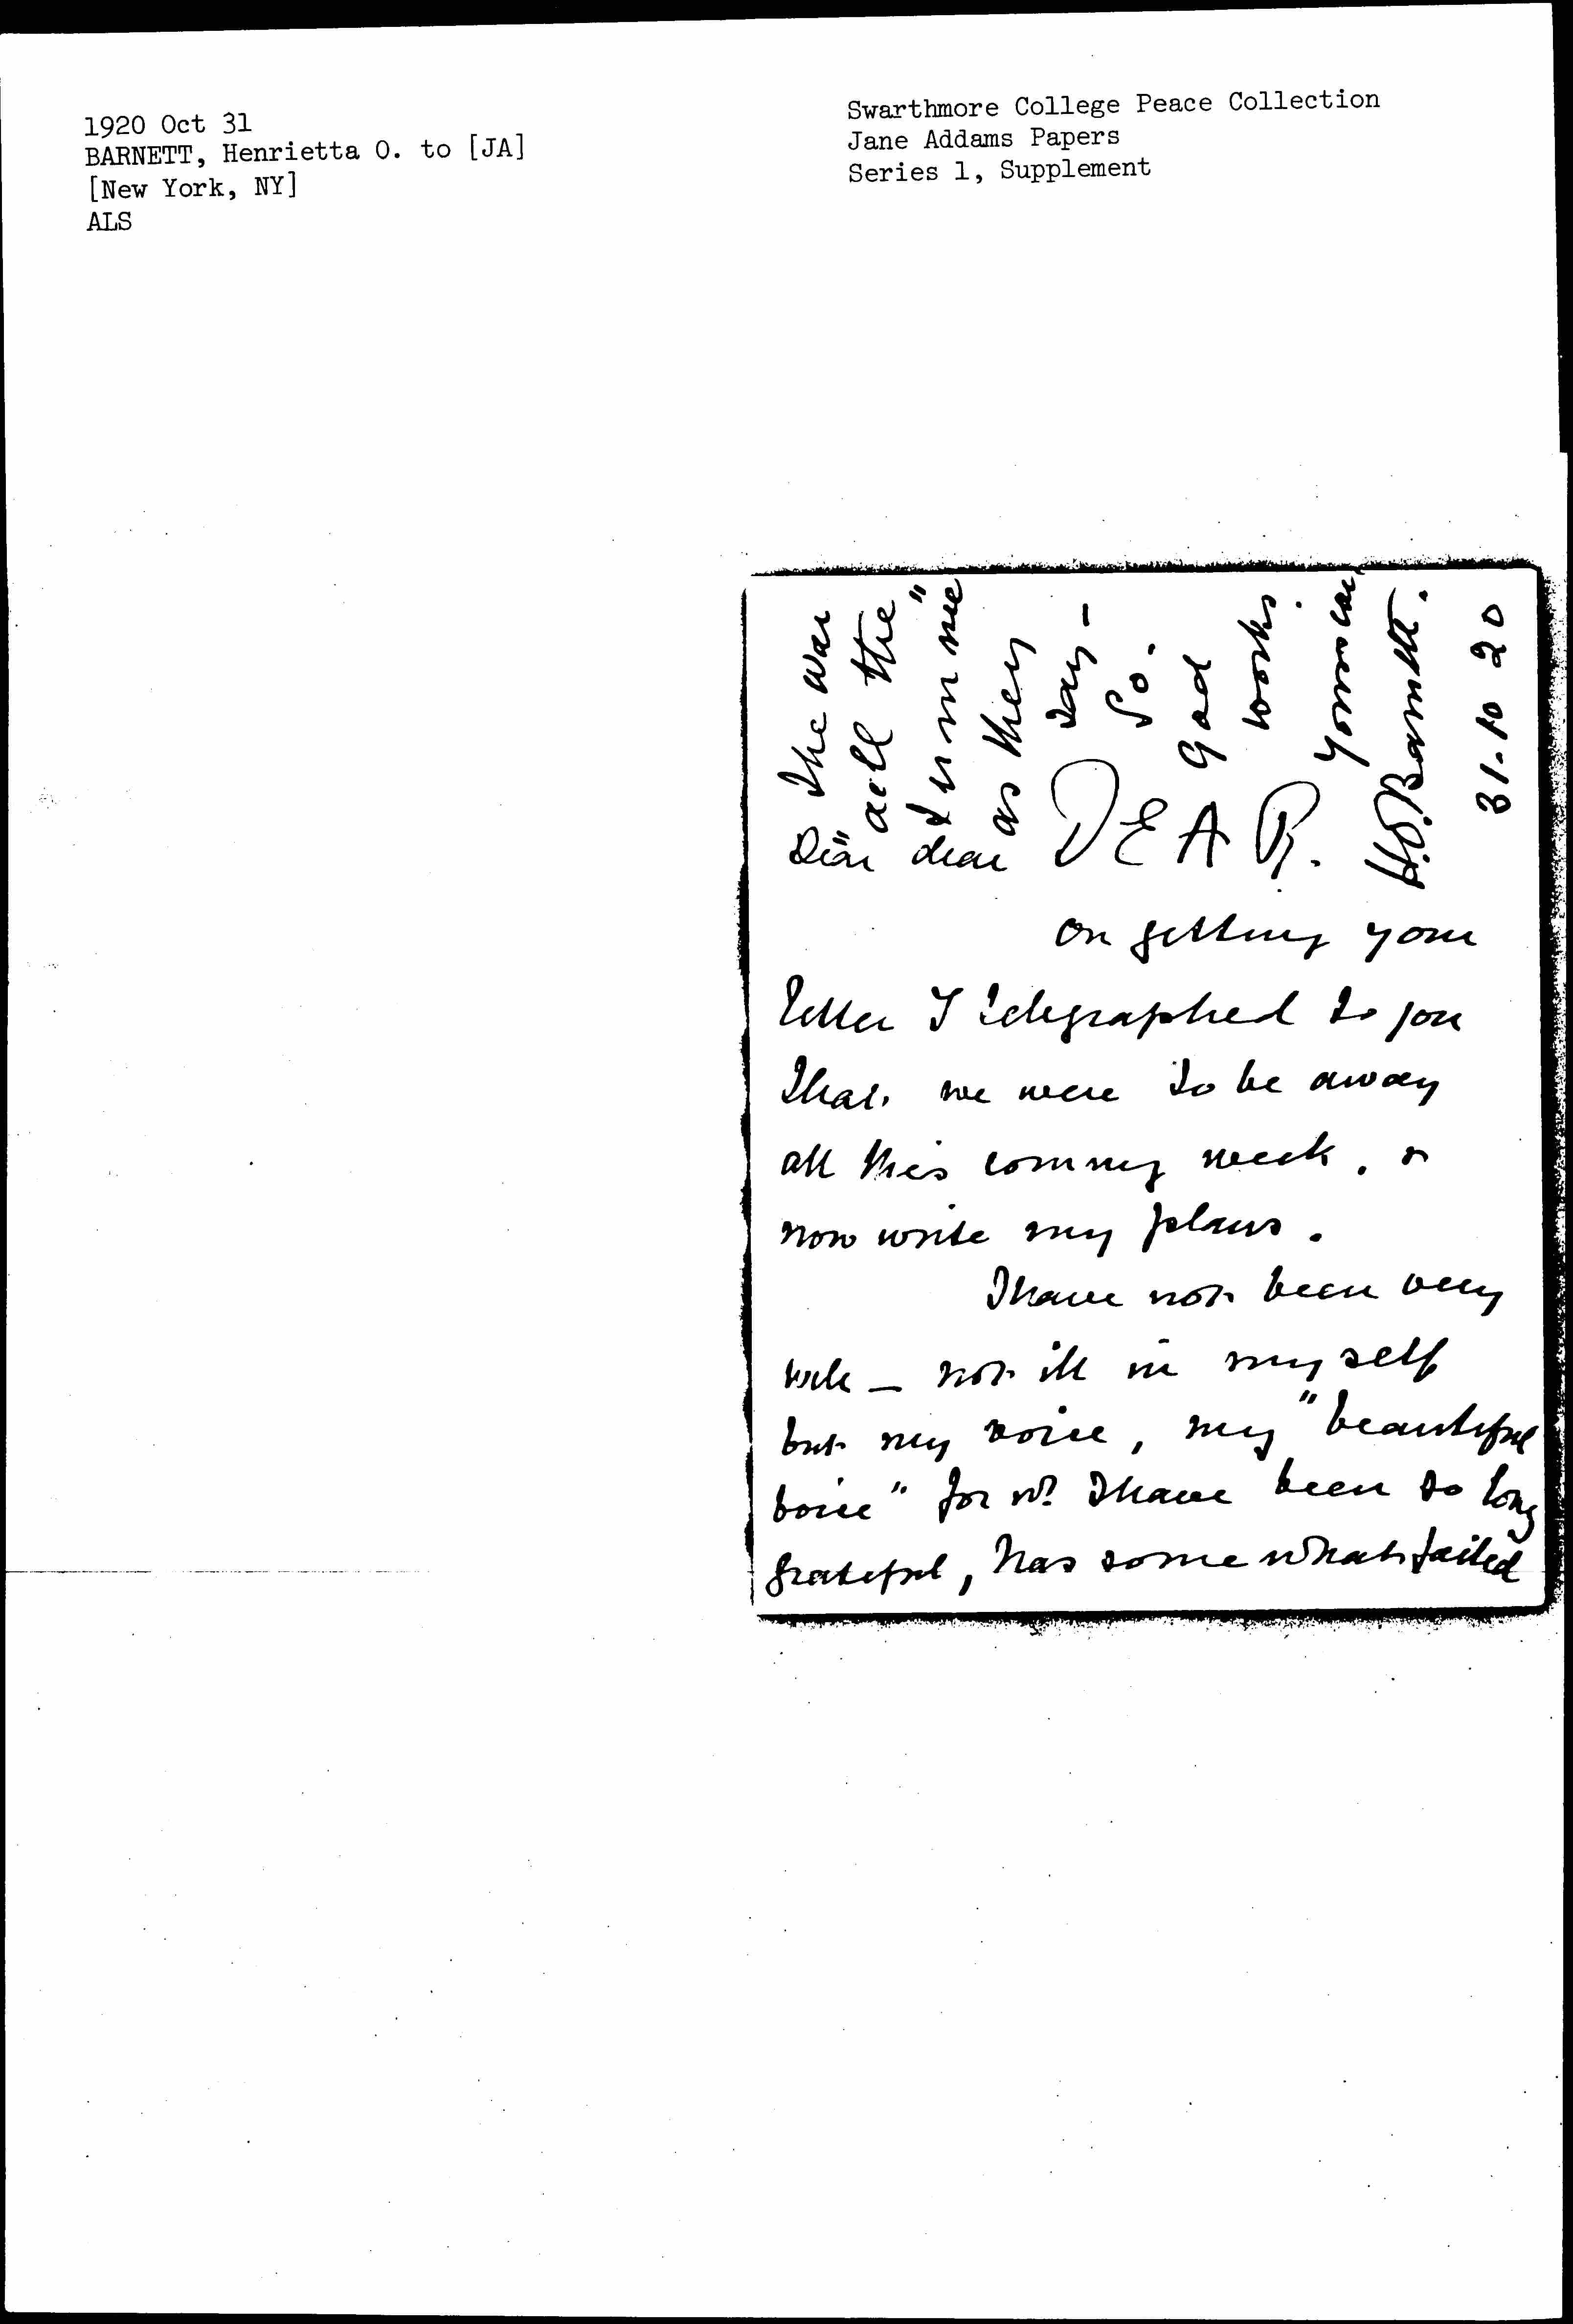 1920 Oct 31
BARNETT, Henrietta O. to [JA]
[New York, NY]
ALS
Swarthmore College Peace Collection
Jane Addams Papers
Series 1, Supplement
31.10 20
Dear dear DEAR.
On getting your
letter I telegraphed to you
that we were to be away
all this coming week, &
now write my plans.
I have not been very
well – not ill in myself
but my voice, my "beautiful
voice" for wh I have been so long
grateful, has somewhat failed
the war
"all the
time"
as they
say –
So.
God
works.
Yours
H.O. Barnett.